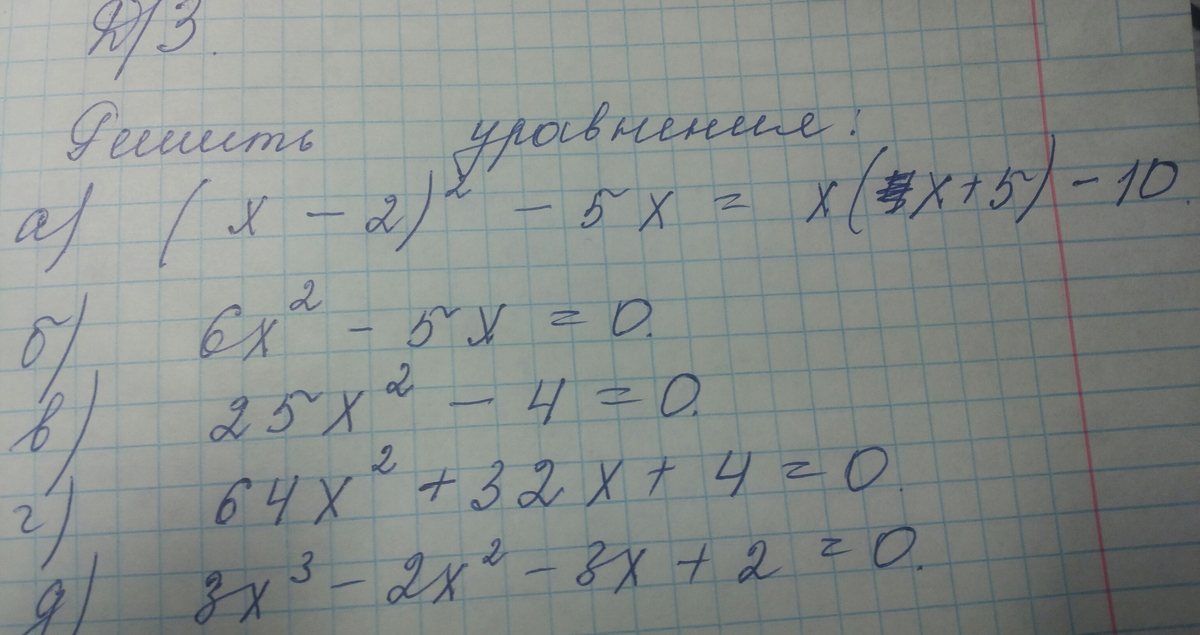 Д/З.
Решить уравнения:
а) (x - 2)² - 5x = x(x+5) - 10.
б) 6x² - 5x = 0.
в) 25x² - 4 = 0.
г) 64x² + 32x + 4 = 0.
д) 3x³ - 2x² - 3x + 2 = 0.